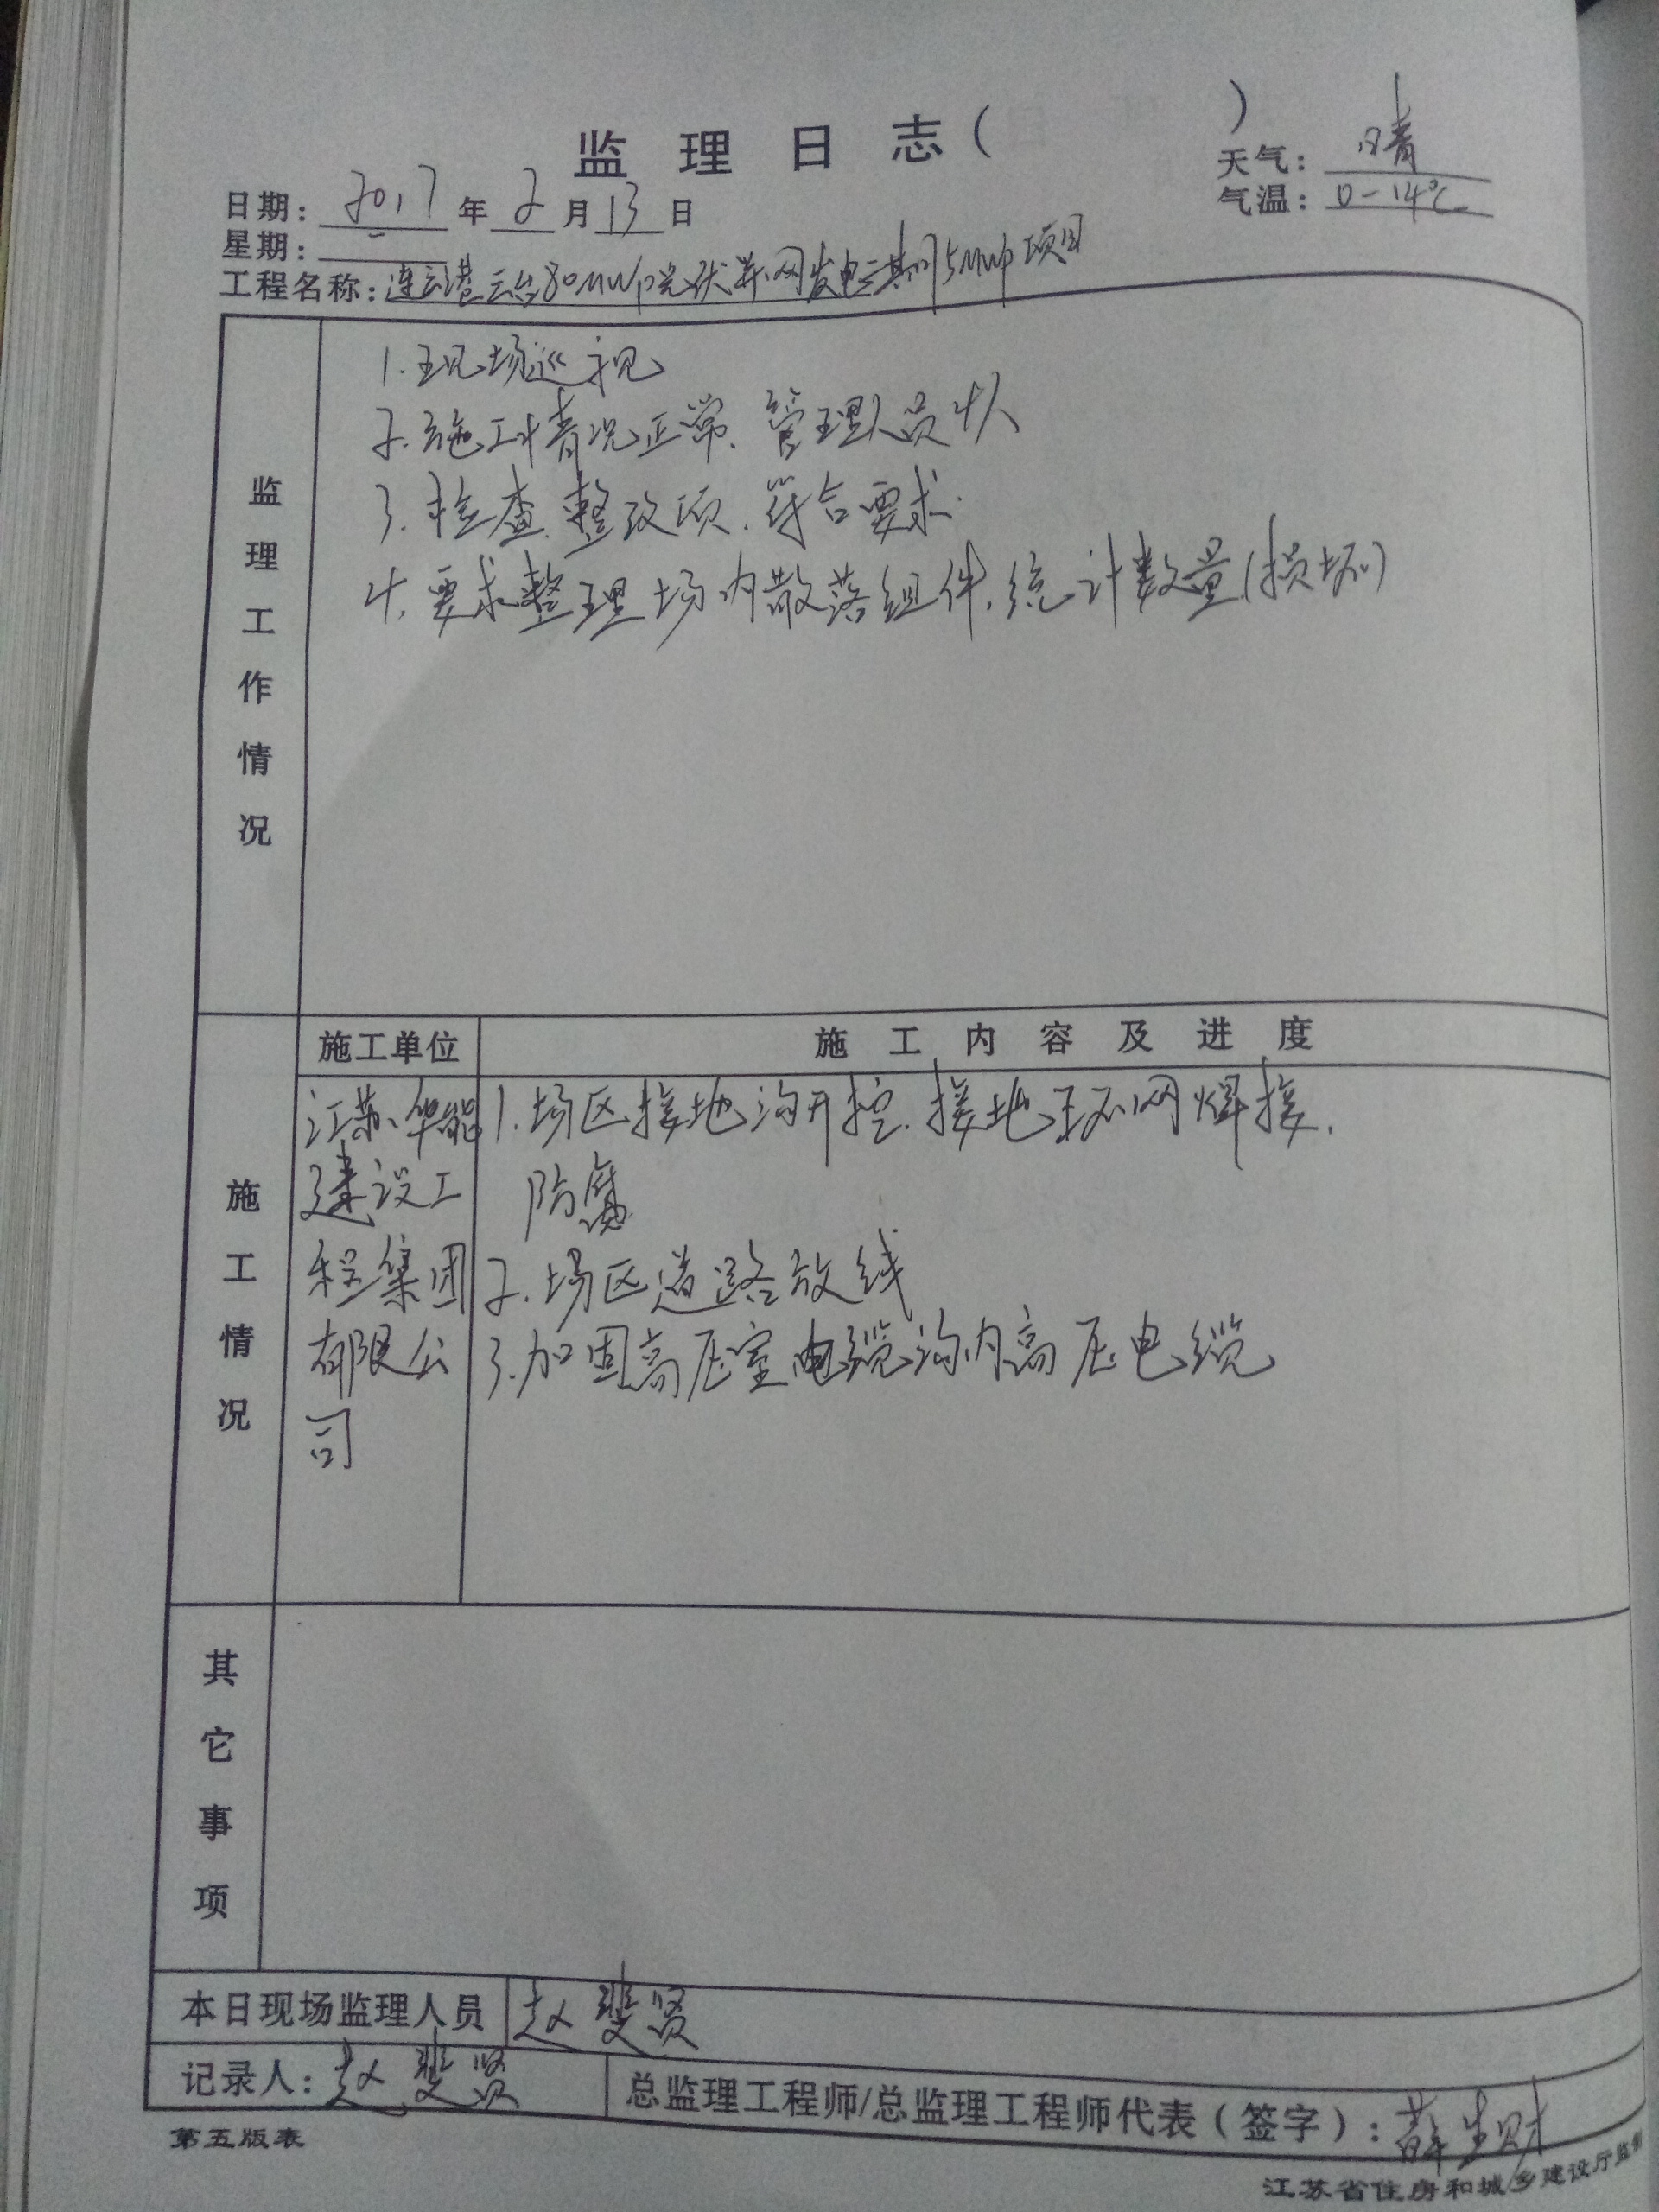 监理日志（ ）
天气：晴
日期：2017年2月13日
气温：0-14℃
星期：一
工程名称：连云港云台80MWp光伏并网发电二期15MWp项目
监理工作情况
1.现场巡视
2.施工情况正常、管理人员4人
3.检查.整改项.符合要求.
4.要求整理场内散落组件.统计数量(损坏)
施工情况
施工单位
施工内容及进度
江苏华能
建设工
程集团
有限公
司
1.场区接地沟开挖.接地环网焊接.
防腐
2.场区道路放线
3.加固高压室电缆沟内高压电缆
其它事项
本日现场监理人员 赵斐贤
记录人：赵斐贤
总监理工程师/总监理工程师代表（签字）：薛生财
第五版表
江苏省住房和城乡建设厅监制